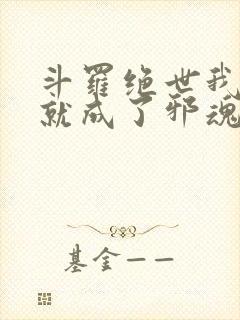 斗羅绝世我
就成了邪魂
基金一一